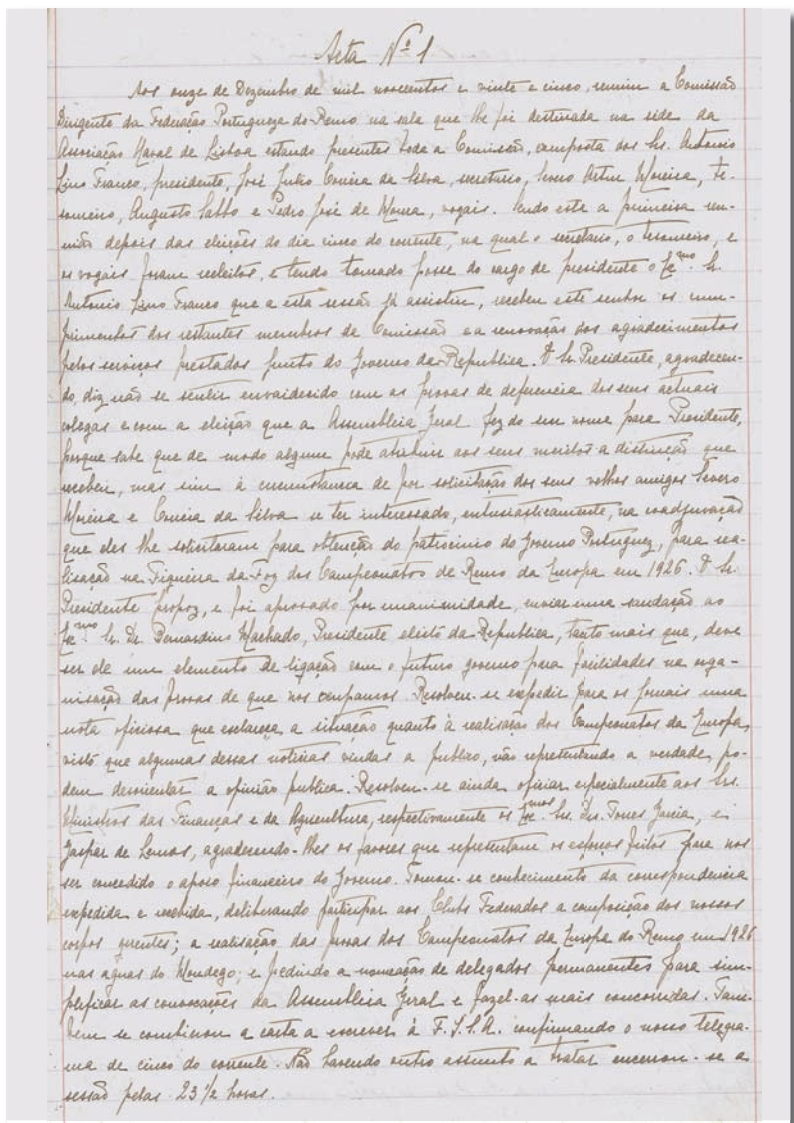 Acta Nº 1
Aos onze de Dezembro de mil novecentos e vinte e cinco, reuniu a Comissão
Dirigente da Federação Portugueza do Remo na sala que lhe foi destinada na séde da
Associação Naval de Lisboa estando presentes toda a Comissão, composta dos Sr. Antonio
Lino Franco, presidente, José Julio Correia da Silva, secretario, Severo Artur Moreira, te-
soureiro, Augusto Sabbo e Pedro José de Moura, vogais. Sendo este a primeira reu-
nião depois das eleições do dia cinco do corrente, na qual o secretario, o tesoureiro, e
os vogais foram reeleitos, e tendo tomado posse do cargo de presidente o Exmo. Sr.
Antonio Lino Franco que a esta sessão já assistiu, recebeu este senhor os cum-
primentos dos restantes membros da Comissão e a renovação dos agradecimentos
pelos serviços prestados junto do Governo da Republica. O Sr. Presidente, agradecen-
do, diz não se sentir envaidecido com as provas de deferencia dos seus actuais
colegas e com a eleição que a Assembleia Geral fez do seu nome para Presidente,
porque sabe que de modo algum pode atribuir aos seus meritos a distinção que
recebeu, mas sim á circumstancia de por solicitação dos seus velhos amigos Severo
Moreira e Correia da Silva se ter interessado, entusiasticamente, na coadjuvação
que eles lhe solicitaram para obtenção do patrocinio do Governo Portuguez, para rea-
lisação na Figueira da Foz dos Campeonatos de Remo da Europa em 1926. O Sr.
Presidente propoz, e foi aprovado por unanimidade, enviar uma saudação ao
Exmo Sr. Dr. Bernardino Machado, Presidente eleito da Republica, tanto mais que, deve
ser ele um elemento de ligação com o futuro governo para facilidades na orga-
nisação das provas de que nos ocupamos. Resolveu-se expedir para os jornais uma
nota oficiosa que esclareça a situação quanto à realisação dos Campeonatos da Europa,
visto que algumas dessas noticias vindas a publico, não representando a verdade, po-
dem desorientar a opinião publica. Resolveu-se ainda oficiar especialmente aos Srs.
Ministros das Finanças e da Agricultura, respectivamente os Exmos. Srs. Drs. Torres Garcia, e
Gaspar de Lemos, agradecendo-lhes os favores que representam os esforços feitos para nos
ser concedido o apoio financeiro do Governo. Tomou-se conhecimento da correspondencia
expedida e recebida, deliberando participar aos Clubs Federados a composição dos nossos
corpos gerentes; a realisação das provas dos Campeonatos da Europa do Remo em 1926
nas aguas do Mondego; e pedindo a nomeação de delegados permanentes para sim-
plificar as convocações da Assembleia Geral e fazel-as mais concorridas. Tam-
bem se combinou a carta a escrever á F.I.S.A. confirmando o nosso telegra-
ma de cinco do corrente. Não havendo outro assunto a tratar encerrou-se a
sessão pelas 23 1/2 horas.